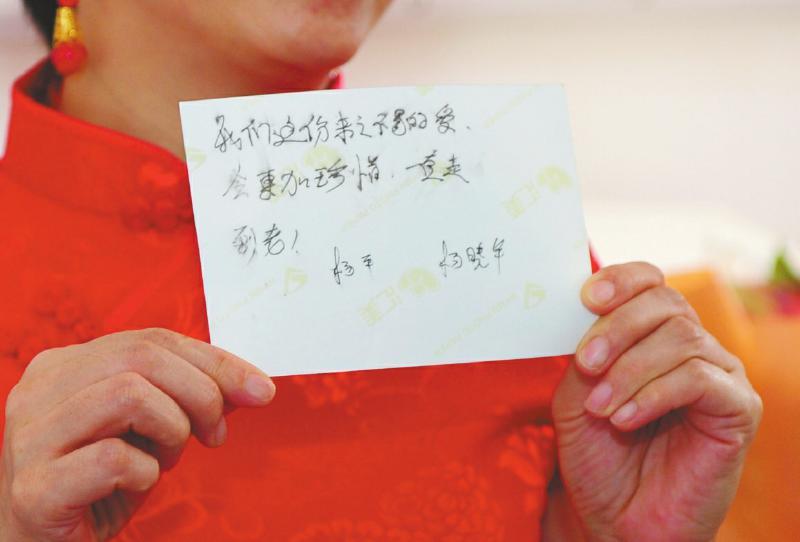 我们这份来之不易的爱、
会更加珍惜，一直走
到老！
杨平 杨晓午